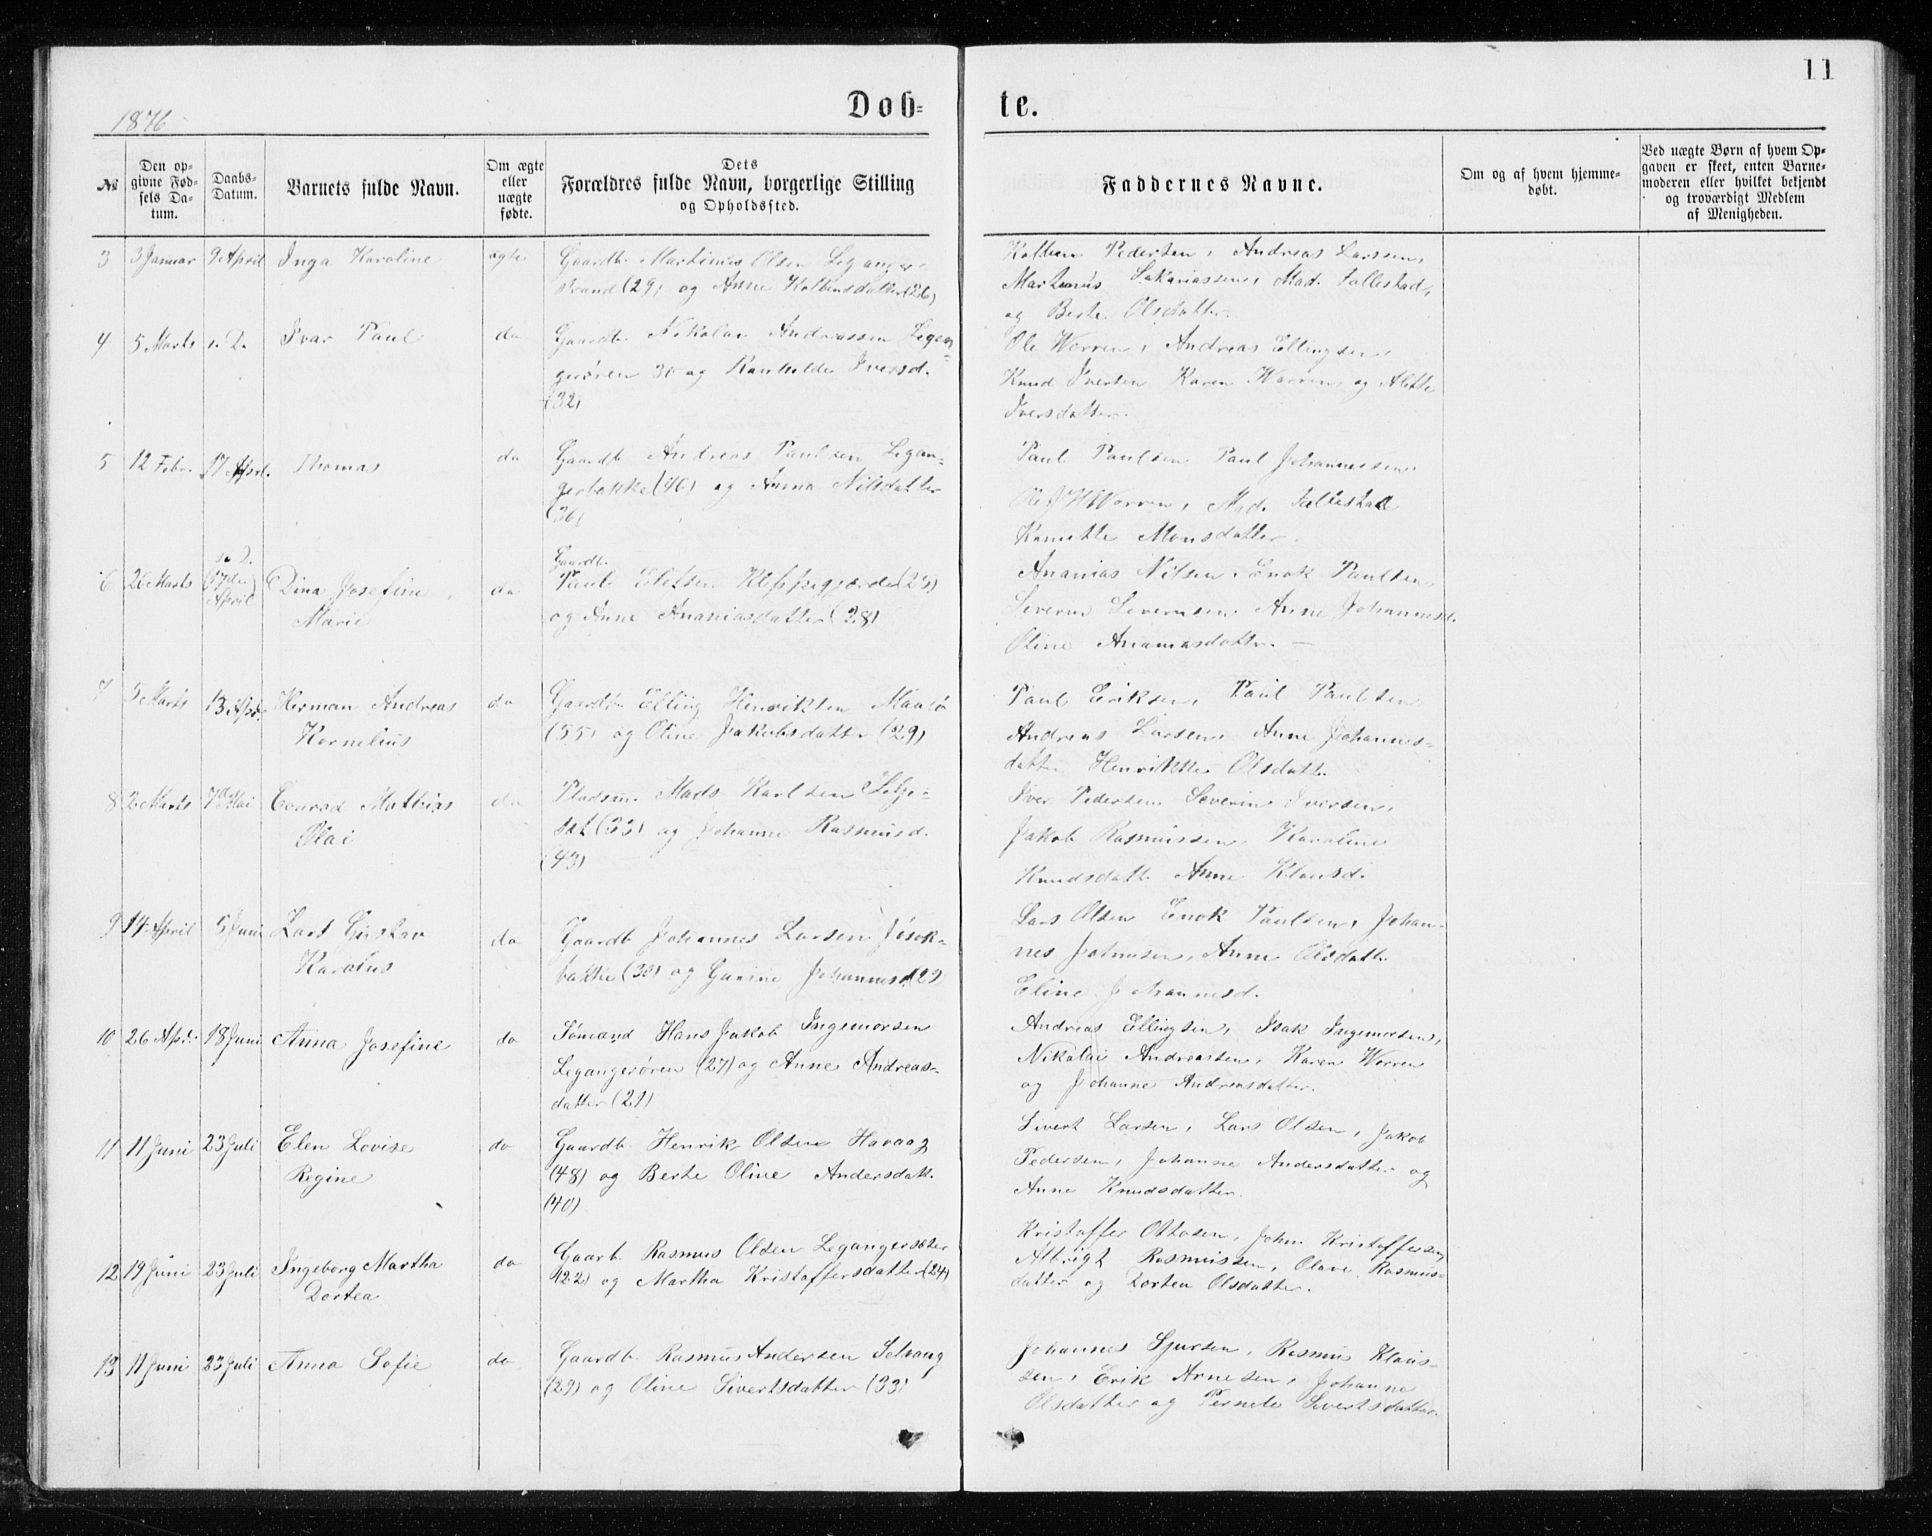 11
Døb=te.
1876
№
Den opgivne Fødsels Datum.
Daabs-Datum.
Barnets fulde Navn.
Om ægte eller uægte fødte.
Dets Forældres fulde Navn, borgerlige Stilling og Opholdssted.
Faddernes Navne.
Om og af hvem hjemmedøbt.
Ved uægte Børn af hvem Opgaven er skeet, enten Barnemoderen eller hvilket bekjendt og troværdigt Medlem af Menigheden.
3 3 Januar 9 April Inga Karoline ægte
Gaardb. Martinus Olsen Leganger-
strand (29) og Anne Kolbensdatter (26)
Kolben Pedersen, Andreas Larssen,
Martinus Sakariassen, Mad. Tallestad,
og Berte Olsdatter.
4 5 Marts s. D. Ivar Paul do
Gaardb. Nikolai Andreassen Legan-
gerøren 30 og Ranhilde Iversd.
(32)
Ole Worren, Andreas Ellingsen,
Knud Iversen Karen Worren, og Alette
Iversdatter.
5 12 Febr. 17 April. Thomas do
Gaardb Andreas Paulsen Legan-
gerbakke (46) og Anna Nilsdatter
(36)
Paul Paulsen Paul Johannessen,
Ole J H Worren, Mad. Tallestad
Monsdatter.
6 26 Marts s. D. (17de April) Dina Josefine
Marie do
Gaardb.
Paul Eletsen
og Anne Ananiasdatter (28)
Ananias Nilsen, Enok Paulsen,
Severin Severinsen, Anne Johannesd.
Oline Ananiasdatter. —
7 5 Marts 13 Apr. Herman Andreas
Kornelius do
Gaardb. Elling Henriksen Maaløe
(55) og Oline Jakobsdatter (29)
Paul Eriksen, Paul Paulsen
Andreas Larsen, Anne Johannes-
datter Henrikke Olsdatt.
8 2 Marts 7de Mai Conrad Mathias
Olai do
Pladsm. Mads Karlsen Selje-
set (33) og Johanne Rasmusd.
(43)
Iver Pedersen Severin Iversen,
Jakob Rasmussen, Karoline
Knudsdatt. Anne Klausd.
9 14 April 5 Juni Lars Gustav
Karolus do
Gaardb Johannes Larsen
bakke (30) og Gurine Johannesd (29
Lars Olsen Enok Paulsen, Johan-
nes Johnsen, Anne Olsdatt.
Eline Johannesd.
10 26 Apr. 18 Juni Anna Josefine do
Sømand Hans Jakob Ingemorsen
Legangerøren (27) og Anne Andreas-
datter (21)
Andreas Ellingsen, Isak Ingemorsen,
Nikolai Andreassen, Karen Worren
og Johanne Andreasdatter.
11 11 Juni 23 Juli Elen Lovise
Regine do
Gaardb. Henrik Olsen Havaag
(48) og Berte Oline Andersdatt.
(40)
Sivert Larsen, Lars Olsen, Jakob
Pedersen, Johanne Andersdatter og
Anne Knudsdatter.
12 19 Juni 23 Juli Ingeborg Martha
Dortea do
Gaarb. Rasmus Olsen Legangersæter
(22) og Martha Kristoffersdatter (24)
Kristoffer Ottosen, John Kristoffersen,
Albrigt Rasmussen, Olave Rasmus-
datter og Dortea Olsdatter.
13 11 Juni 23 Juli Anna Sofie do
Gaardb. Rasmus Andersen Selvaag
(29) og Oline Sivertsdatter (33)
Johannes Sjursen, Rasmus Klaus-
sen, Erik Arnesen, Johanne
Olsdatter og Pernele Sivertsdatter.